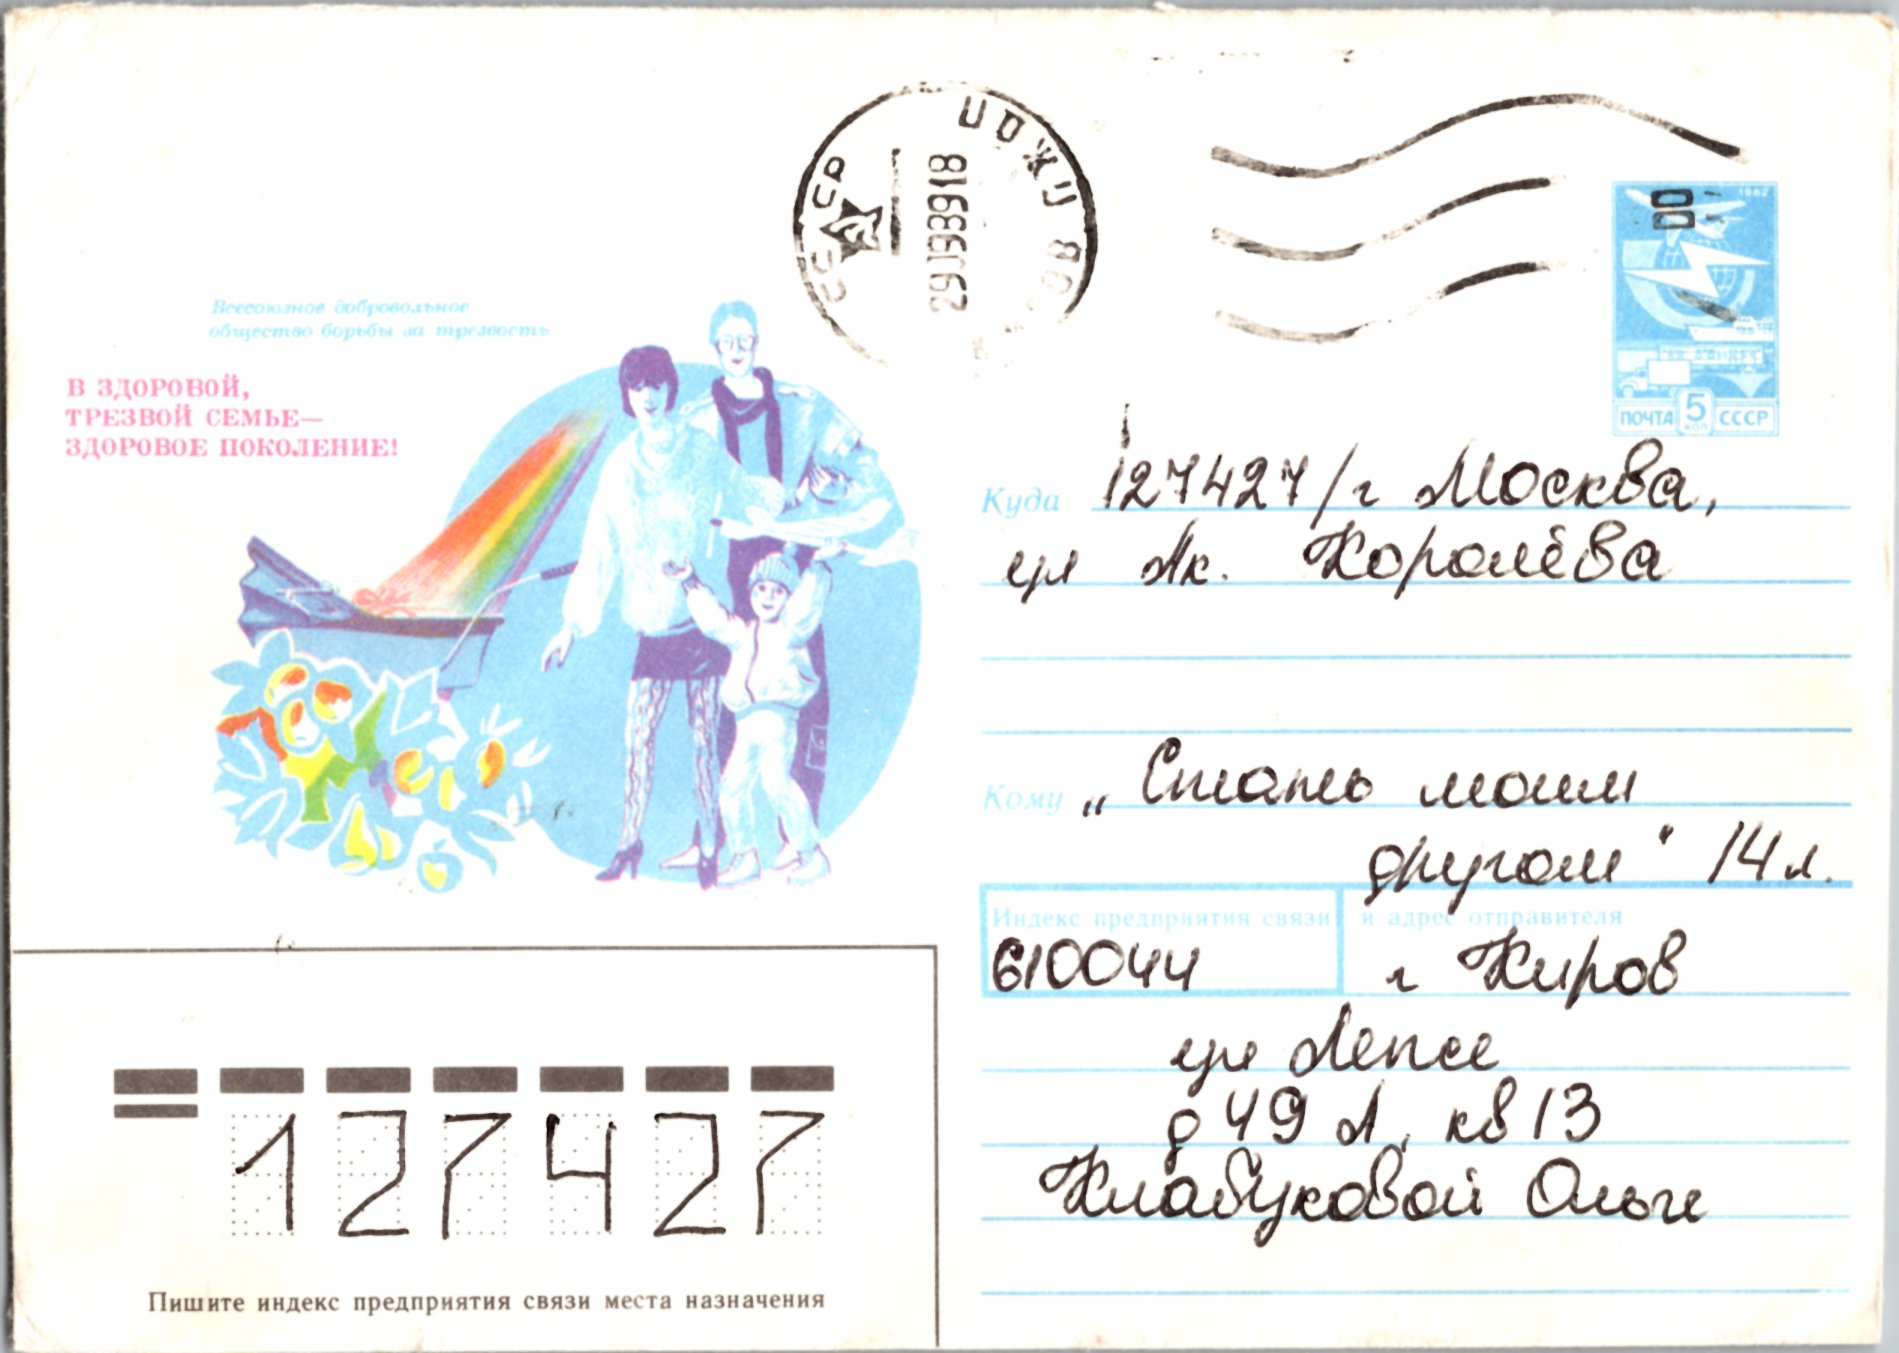 Всесоюзное добровольное
общество борьбы за трезвость
В ЗДОРОВОЙ,
ТРЕЗВОЙ СЕМЬЕ—
ЗДОРОВОЕ ПОКОЛЕНИЕ!
СССР
1982
ПОЧТА 5 КОП СССР
Куда 127427/г Москва,
ул Ак. Королёва
Кому „Стать моим
другом“ 14 л.
Индекс предприятия связи и адрес отправителя
610044 г Киров
ул Лепсе
д 49 А, кв 13
Клабуковой Ольге
127427
Пишите индекс предприятия связи места назначения